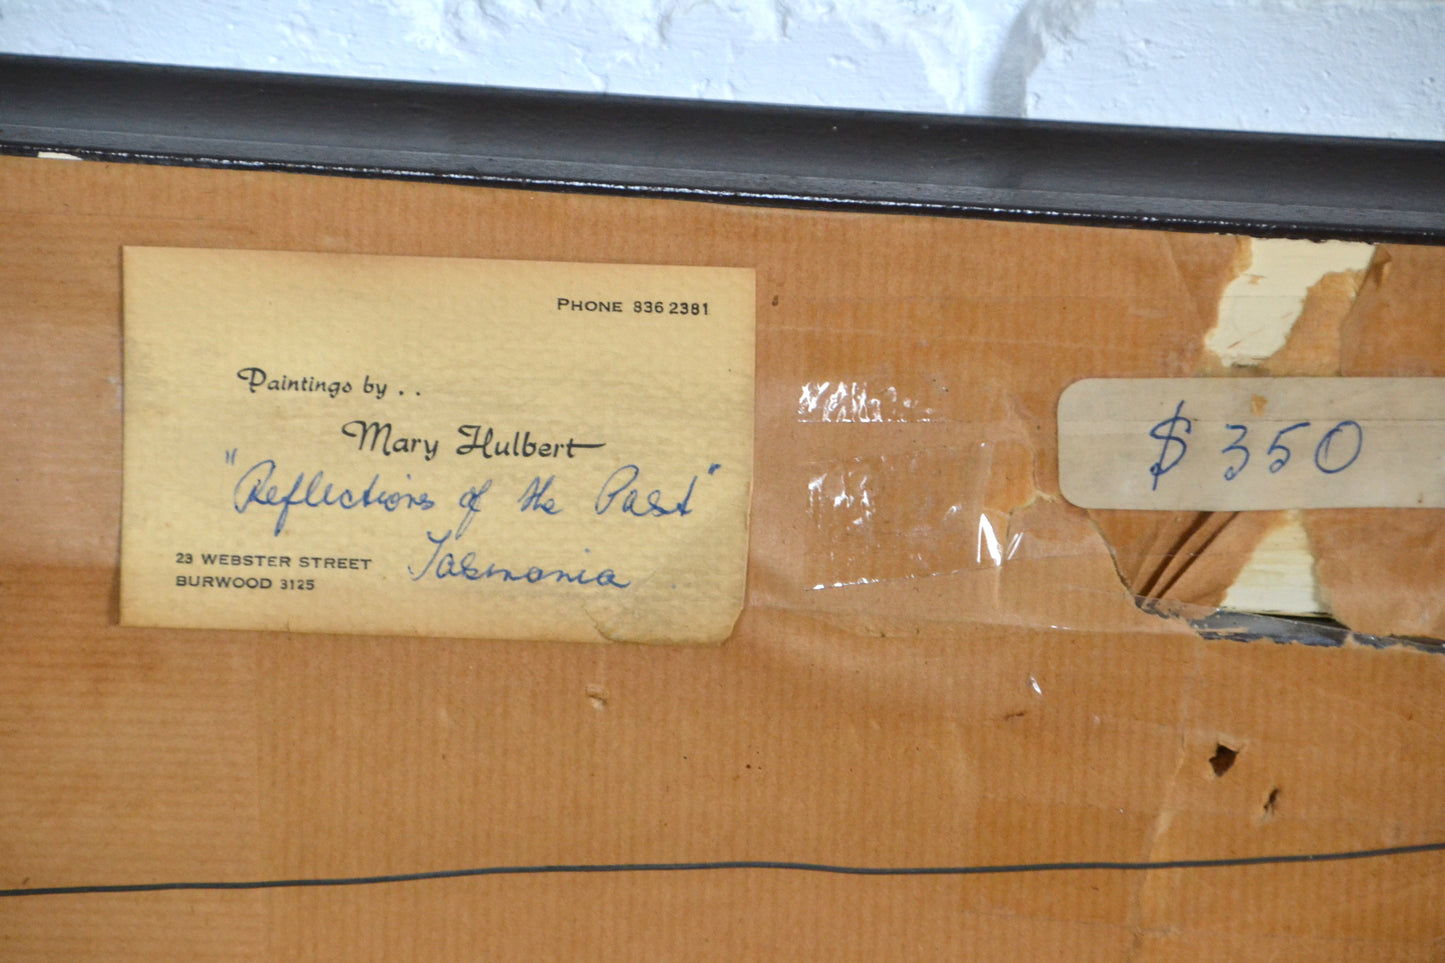 PHONE 836 2381
Paintings by . .
Mary Hulbert
"Reflections of the Past"
Tasmania
23 WEBSTER STREET
BURWOOD 3125
$350